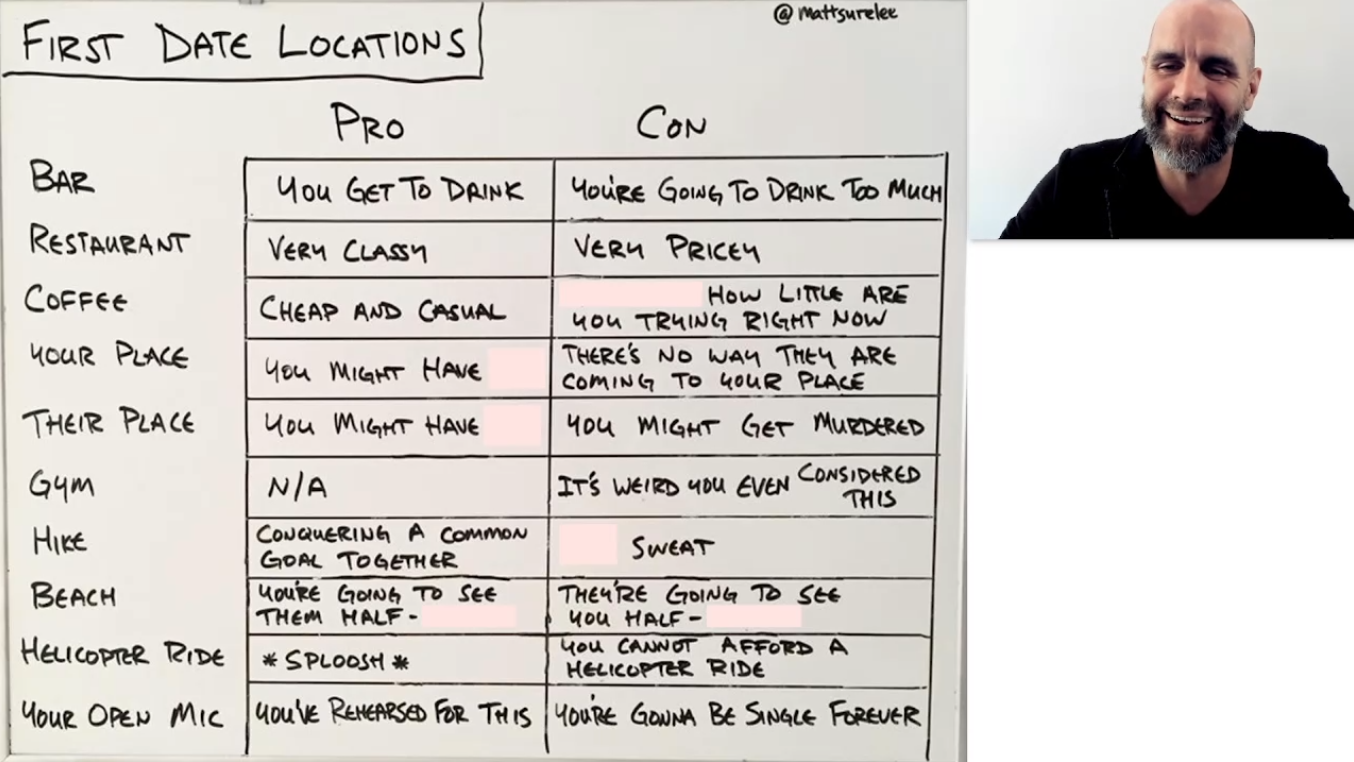 @mattsurelee
FIRST DATE LOCATIONS
PRO CON
BAR YOU GET TO DRINK YOU'RE GOING TO DRINK TOO MUCH
RESTAURANT VERY CLASSY VERY PRICEY
COFFEE CHEAP AND CASUAL HOW LITTLE ARE
YOU TRYING RIGHT NOW
YOUR PLACE YOU MIGHT HAVE THERE'S NO WAY THEY ARE
COMING TO YOUR PLACE
THEIR PLACE YOU MIGHT HAVE YOU MIGHT GET MURDERED
GYM N/A IT'S WEIRD YOU EVEN CONSIDERED
THIS
HIKE CONQUERING A COMMON
GOAL TOGETHER
SWEAT
BEACH YOU'RE GOING TO SEE
THEM HALF-
THEY'RE GOING TO SEE
YOU HALF-
HELICOPTER RIDE *SPLOOSH* YOU CANNOT AFFORD A
HELICOPTER RIDE
YOUR OPEN MIC YOU'VE REHEARSED FOR THIS YOU'RE GONNA BE SINGLE FOREVER